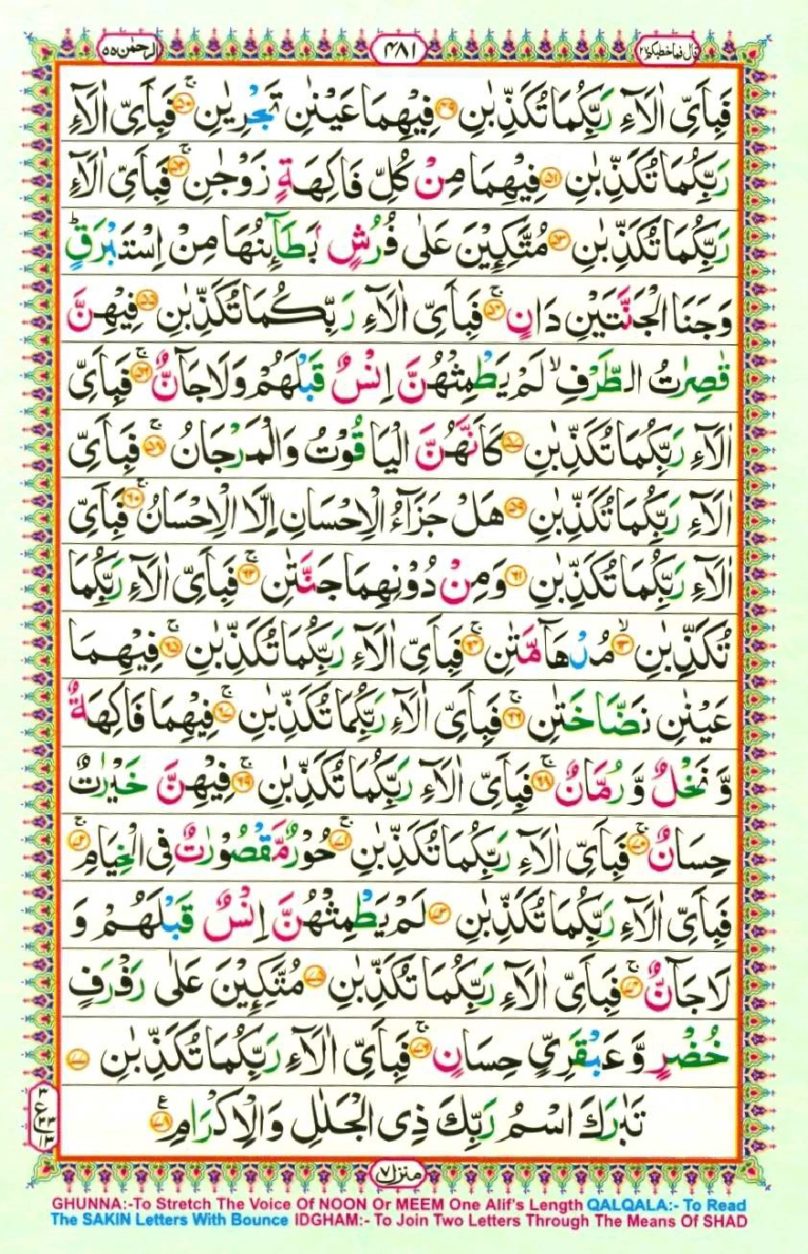 الرحمٰن ۵۵
۴۸۱
قال فما خطبکم ۲۷
فَبِاَىِّ اٰلَآءِ رَبِّكُمَا تُكَذِّبٰنِ ۴۹ فِيْهِمَا عَيْنٰنِ تَجْرِيٰنِ ۚ۵۰ فَبِاَىِّ اٰلَآءِ
رَبِّكُمَا تُكَذِّبٰنِ ۵۱ فِيْهِمَا مِنْ كُلِّ فَاكِهَةٍ زَوْجٰنِ ۚ۵۲ فَبِاَىِّ اٰلَآءِ
رَبِّكُمَا تُكَذِّبٰنِ ۵۳ مُتَّكِـِٕيْنَ عَلٰى فُرُشٍۢ بَطَآٮِٕنُهَا مِنْ اِسْتَبْرَقٍ ؕ
وَجَنَا الْجَـنَّتَيْنِ دَانٍ ۚ۵۴ فَبِاَىِّ اٰلَآءِ رَبِّكُمَا تُكَذِّبٰنِ ۵۵ فِيْهِنَّ
قٰصِرٰتُ الطَّرْفِ ۙ لَمْ يَطْمِثْهُنَّ اِنْسٌ قَبْلَهُمْ وَلَا جَآنٌّ ۚ۵۶ فَبِاَىِّ
اٰلَآءِ رَبِّكُمَا تُكَذِّبٰنِ ۚ۵۷ كَاَنَّهُنَّ الْيَاقُوْتُ وَالْمَرْجَانُ ۚ۵۸ فَبِاَىِّ
اٰلَآءِ رَبِّكُمَا تُكَذِّبٰنِ ۵۹ هَلْ جَزَآءُ الْاِحْسَانِ اِلَّا الْاِحْسَانُ ۚ۶۰ فَبِاَىِّ
اٰلَآءِ رَبِّكُمَا تُكَذِّبٰنِ ۶۱ وَمِنْ دُوْنِهِمَا جَنَّتٰنِ ۚ۶۲ فَبِاَىِّ اٰلَآءِ رَبِّكُمَا
تُكَذِّبٰنِ ۙ۶۳ مُدْهَآمَّتٰنِ ۚ۶۴ فَبِاَىِّ اٰلَآءِ رَبِّكُمَا تُكَذِّبٰنِ ۚ۶۵ فِيْهِمَا
عَيْنٰنِ نَضَّاخَتٰنِ ۚ۶۶ فَبِاَىِّ اٰلَآءِ رَبِّكُمَا تُكَذِّبٰنِ ۚ۶۷ فِيْهِمَا فَاكِهَةٌ
وَّ نَخْلٌ وَّ رُمَّانٌ ۚ۶۸ فَبِاَىِّ اٰلَآءِ رَبِّكُمَا تُكَذِّبٰنِ ۚ۶۹ فِيْهِنَّ خَيْرٰتٌ
حِسَانٌ ۚ۷۰ فَبِاَىِّ اٰلَآءِ رَبِّكُمَا تُكَذِّبٰنِ ۚ۷۱ حُوْرٌ مَّقْصُوْرٰتٌ فِى الْخِيَامِ ۚ۷۲
فَبِاَىِّ اٰلَآءِ رَبِّكُمَا تُكَذِّبٰنِ ۷۳ لَمْ يَطْمِثْهُنَّ اِنْسٌ قَبْلَهُمْ وَ
لَا جَآنٌّ ۚ۷۴ فَبِاَىِّ اٰلَآءِ رَبِّكُمَا تُكَذِّبٰنِ ۷۵ مُتَّكِـِٕيْنَ عَلٰى رَفْرَفٍ
خُضْرٍ وَّعَبْقَرِىٍّ حِسَانٍ ۚ۷۶ فَبِاَىِّ اٰلَآءِ رَبِّكُمَا تُكَذِّبٰنِ ۷۷
تَبٰرَكَ اسْمُ رَبِّكَ ذِى الْجَلٰلِ وَالْاِكْرَامِ ۷۸
۳
ع
۳۳
۱۳
منزل ۷
GHUNNA:-To Stretch The Voice Of NOON Or MEEM One Alif's Length QALQALA:- To Read
The SAKIN Letters With Bounce IDGHAM:- To Join Two Letters Through The Means Of SHAD